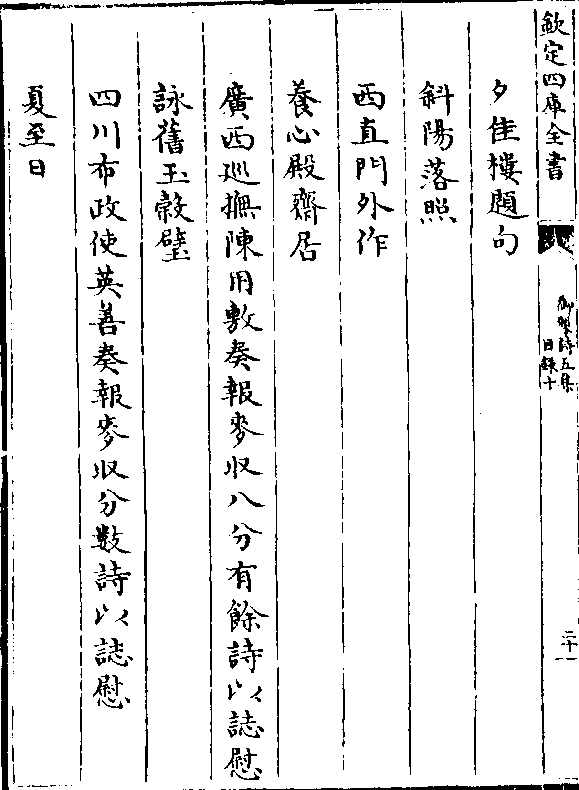 欽定四庫全書
御製詩五集
目録十
二十一
夕佳樓題句
斜陽落照
西直門外作
養心殿齋居
廣西巡撫陳用敷奏報麥收八分有餘詩以誌慰
詠舊玉穀璧
四川布政使英善奏報麥收分數詩以誌慰
夏至日